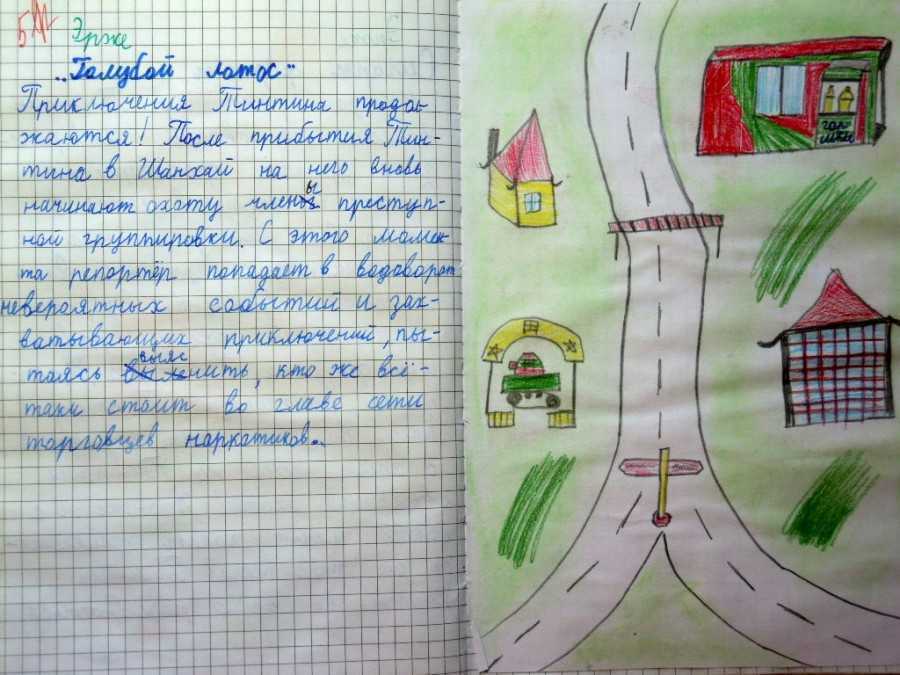 5
Эрже
„Голубой лотос"
Приключения Тинтина продол
жаются! После прибытия Тин-
тина в Шанхай на него вновь
начинают охоту члены преступ-
ной группировки. С этого момен
та репортёр попадает в водоворот
невероятных событий и зах-
ватывающих приключений, пы-
таясь выяснить, кто же всё-
таки стоит во главе сети
торговцев наркотиков..